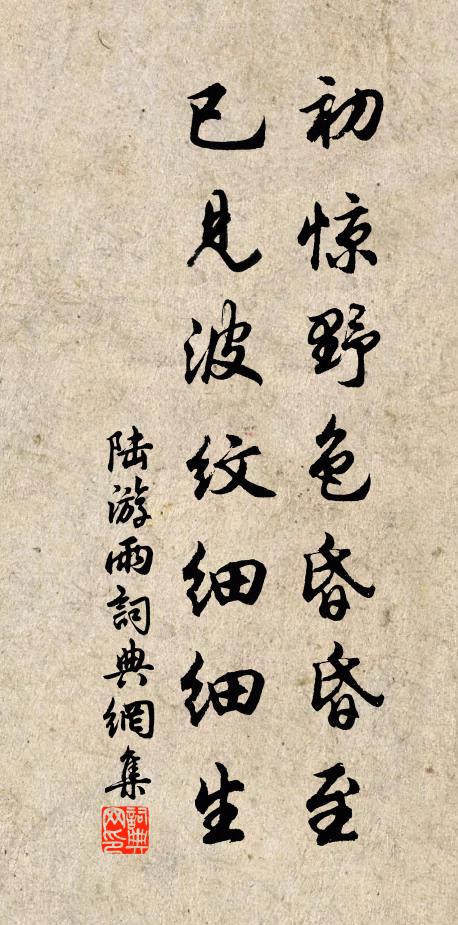 初惊野色昏昏至
已見波纹细细生
陆游雨詞典網集
詞典
网印